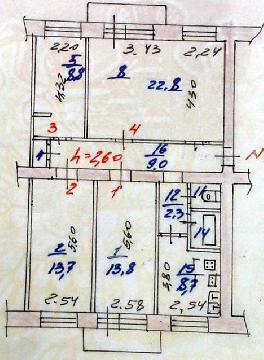 2,20 3,43 2,24
5
8,8
4,32
8
22.8
4,30
3 4
1
h=2,60
16
9.0
2 1
12
2.3
14
2
13,7
5,60
1
13.8
5,60
3,80
15
8,7
2.54 2.58 2,54